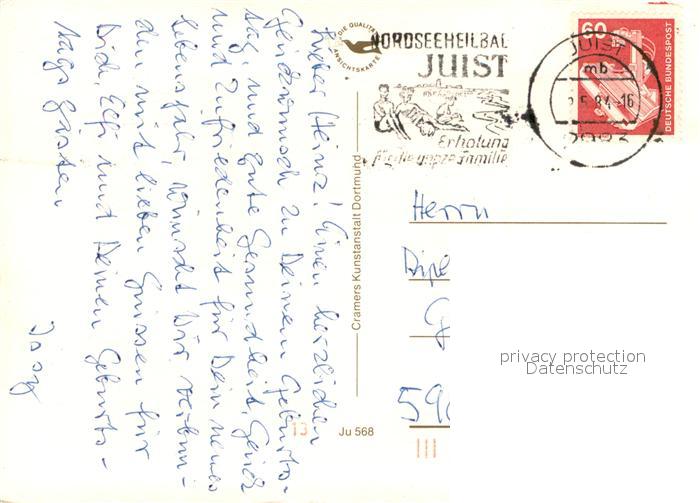 Lieber Heinz! Einen herzlichen
Glückwunsch zu Deinem Geburts-
tag, und gute Gesundheit, Glück
und Zufriedenheit für Dein neues
Lebensjahr, wünscht Dir verbun-
den mit lieben Grüssen für
Dich, Elfi und Deinen Geburts-
tags Gästen
Josef
DIE QUALITÄTS
ANSICHTSKARTE
Cramers Kunstanstalt Dortmund
Ju 568
13
NORDSEEHEILBAD
JUIST
Erholung
für die ganze Familie
JUIST
mb
.5.84-16
60
DEUTSCHE BUNDESPOST
Herrn
Dipl
G
59
privacy protection
Datenschutz